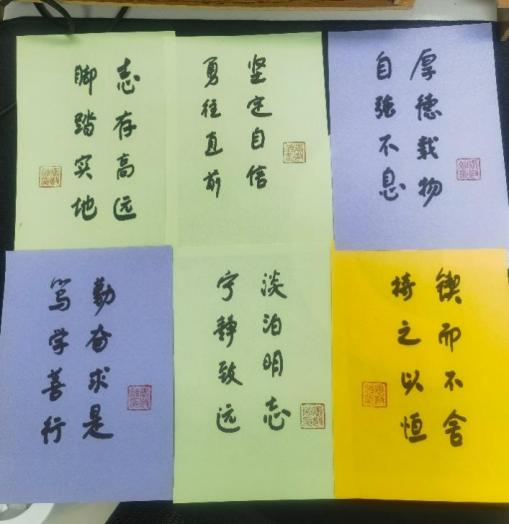 志存高远
脚踏实地
坚定自信
勇往直前
厚德载物
自强不息
勤奋求是
笃学善行
淡泊明志
宁静致远
锲而不舍
持之以恒